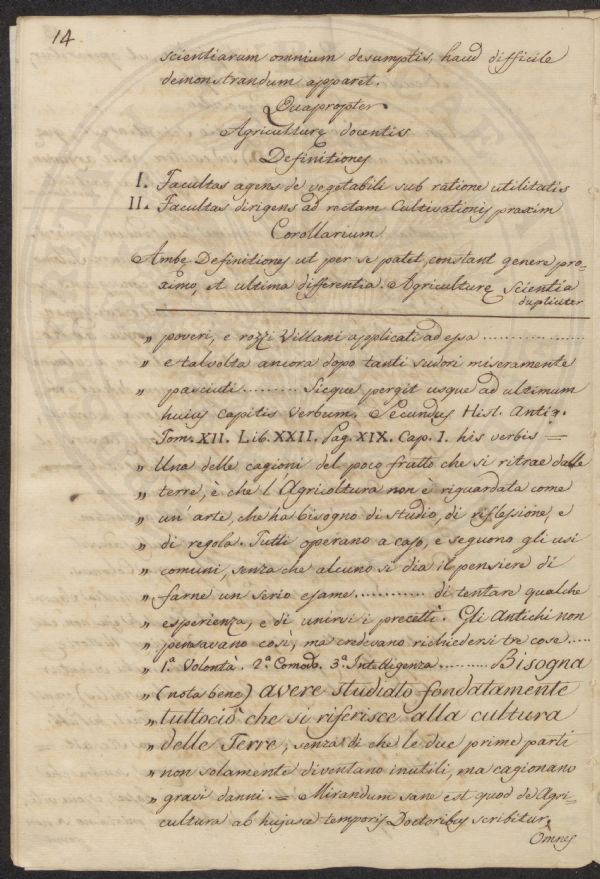 14
scientiarum omnium desumptis, haud difficile
demonstrandum apparet.
Quapropter
Agriculturę docentis
Definitiones
I. Facultas agens de vegetabili sub ratione utilitatis
II. Facultas dirigens ad rectam Cultivationis praxim
Corollarium
Ambę Definitiones ut per se patet, constant genere pro-
ximo, et ultima differentia. Agriculturę Scientia
dupliciter
„ poveri, e rozzi Villani applicati ad essa ..................
„ e talvolta ancora dopo tanti sudori miseramente
„ pasciuti .......... Sicque pergit usque ad ultimum
huius capitis verbum. Secundus Hist. Antiq.
Tom. XII. Lib. XXII. Pag. XIX. Cap. I. his verbis =
„ Una delle cagioni del poco frutto che si ritrae dalle
„ terre, è che l'Agricoltura non è riguardata come
„ un'arte, che ha bisogno di studio, di riflessione, e
„ di regola. Tutti operano a caso, e seguono gli usi
„ comuni, senza che alcuno si dia il pensiere di
„ farne un serio esame ............ di tentare qualche
„ esperienza, e di unirvi i precetti. Gli Antichi non
„ pensavano così, ma credevano richiedersi tre cose .....
„ 1ª Volontà. 2ª Comodo. 3ª Intelligenza .......... Bisogna
„ (nota bene) avere studiato fondatamente
„ tuttociò che si riferisce alla cultura
„ delle Terre, senza di che le due prime parti
„ non solamente diventano inutili, ma cagionano
„ gravi danni. = Mirandum sane est quod de Agri-
cultura ab hujusce temporis Doctoribus scribitur.
Omnes